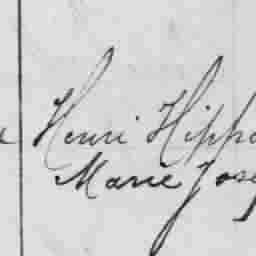 Henri Hippo
Marie Jose